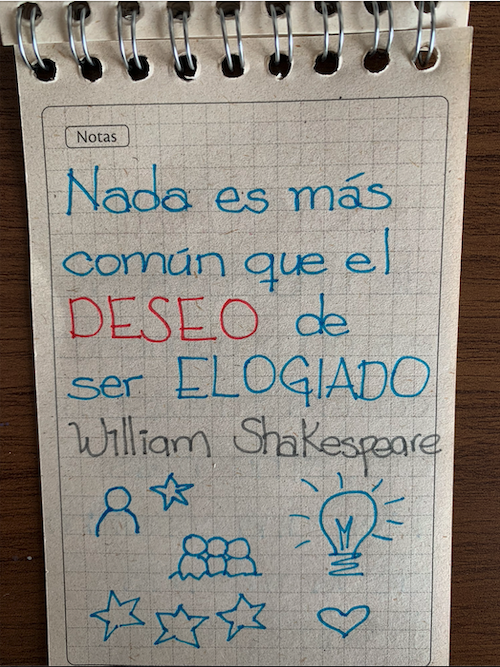 Notas
Nada es más
común que el
DESEO de
ser ELOGIADO
William Shakespeare